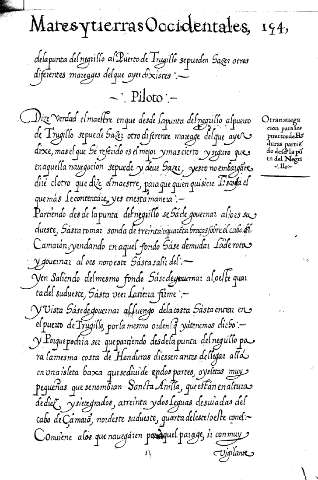 Mares y tierras Occidentales, 154,
de la punta del negrillo al Puerto de Trugillo se pueden hazer otras
diferentes mareages del que aveis dicho
Piloto
Dize Verdad el maestre en que desde la punta del negrillo al punto
de Trugillo se puede hazer otro diferente mareage del que aye
dixe, mas el que he referido es el mejor y mas cierto y seguro que
en aquella navegacion se puede y deve hazer, y esto no embargante
dire el otro que dize el maestre, para que quien quisiere
el que mas le contentare, y es en esta manera
Partiendo desde la punta del negrillo se ha de governar al oes su
dueste, hasta tomar sonda de treinta sobre el cabo de
Camaron, y en dando en aquel fondo ha se de mudar
y governar al oes noroeste hasta salir del
Y en Saliendo del mesmo fondo ha se de governar al oeste quar
ta del sudueste, hasta veer la tierra firme
Y Vista ha se de governar al luengo de la costa hasta entrar en
el puerto de Trugillo, por la mesma orden q ya tenemos dicho
Y Porque podria ser que partiendo desde la punta del negrillo pa
ra la mesma costa de Honduras diessen antes de llegar alla
en una isleta baxa que se divide en dos partes, o isletas muy
pequeñas que se nombran Sanctanilla, que estan en altura
de diez y siete grados, a treinta y dos leguas desviadas del
cabo de Camarõ, nordeste sudueste, quarta del este oeste
Conviene a los que navegaren por aquel parage, ir con muy
Vigilante
Otra navega
cion para el
puerto de Ho
duras parti
do desde la pū
ta del Negri
llo